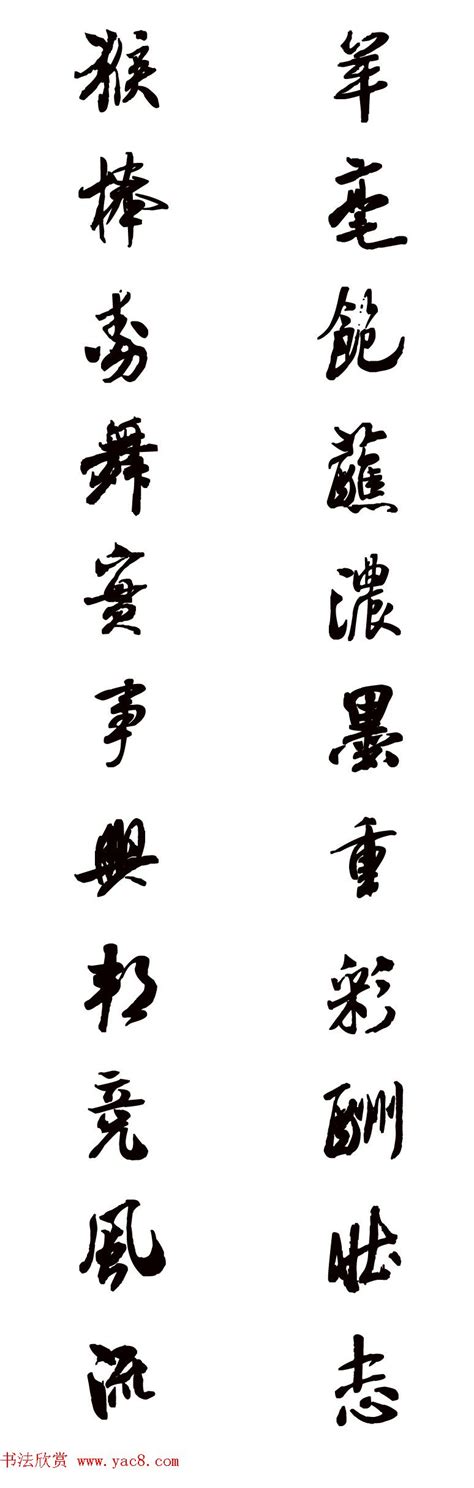 羊毫飽蘸濃墨重彩酬壯志
猴棒勤舞實事興邦竞風流
书法欣赏 www.yac8.com